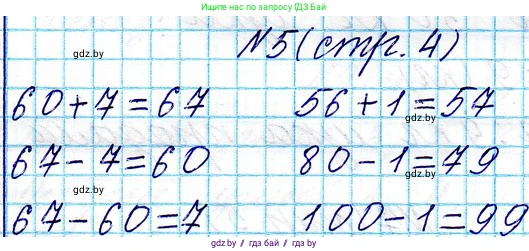 Присоединяйся к нам! Нас легко найти по запросу ГДЗ Бай
gdz.by
№5 (стр. 4)
60+7=67 56+1=57
gdz.by
67-7=60 80-1=79
gdz.by gdz.by
67-60=7 100-1=99
gdz.by / гдз.бай / gdz.by